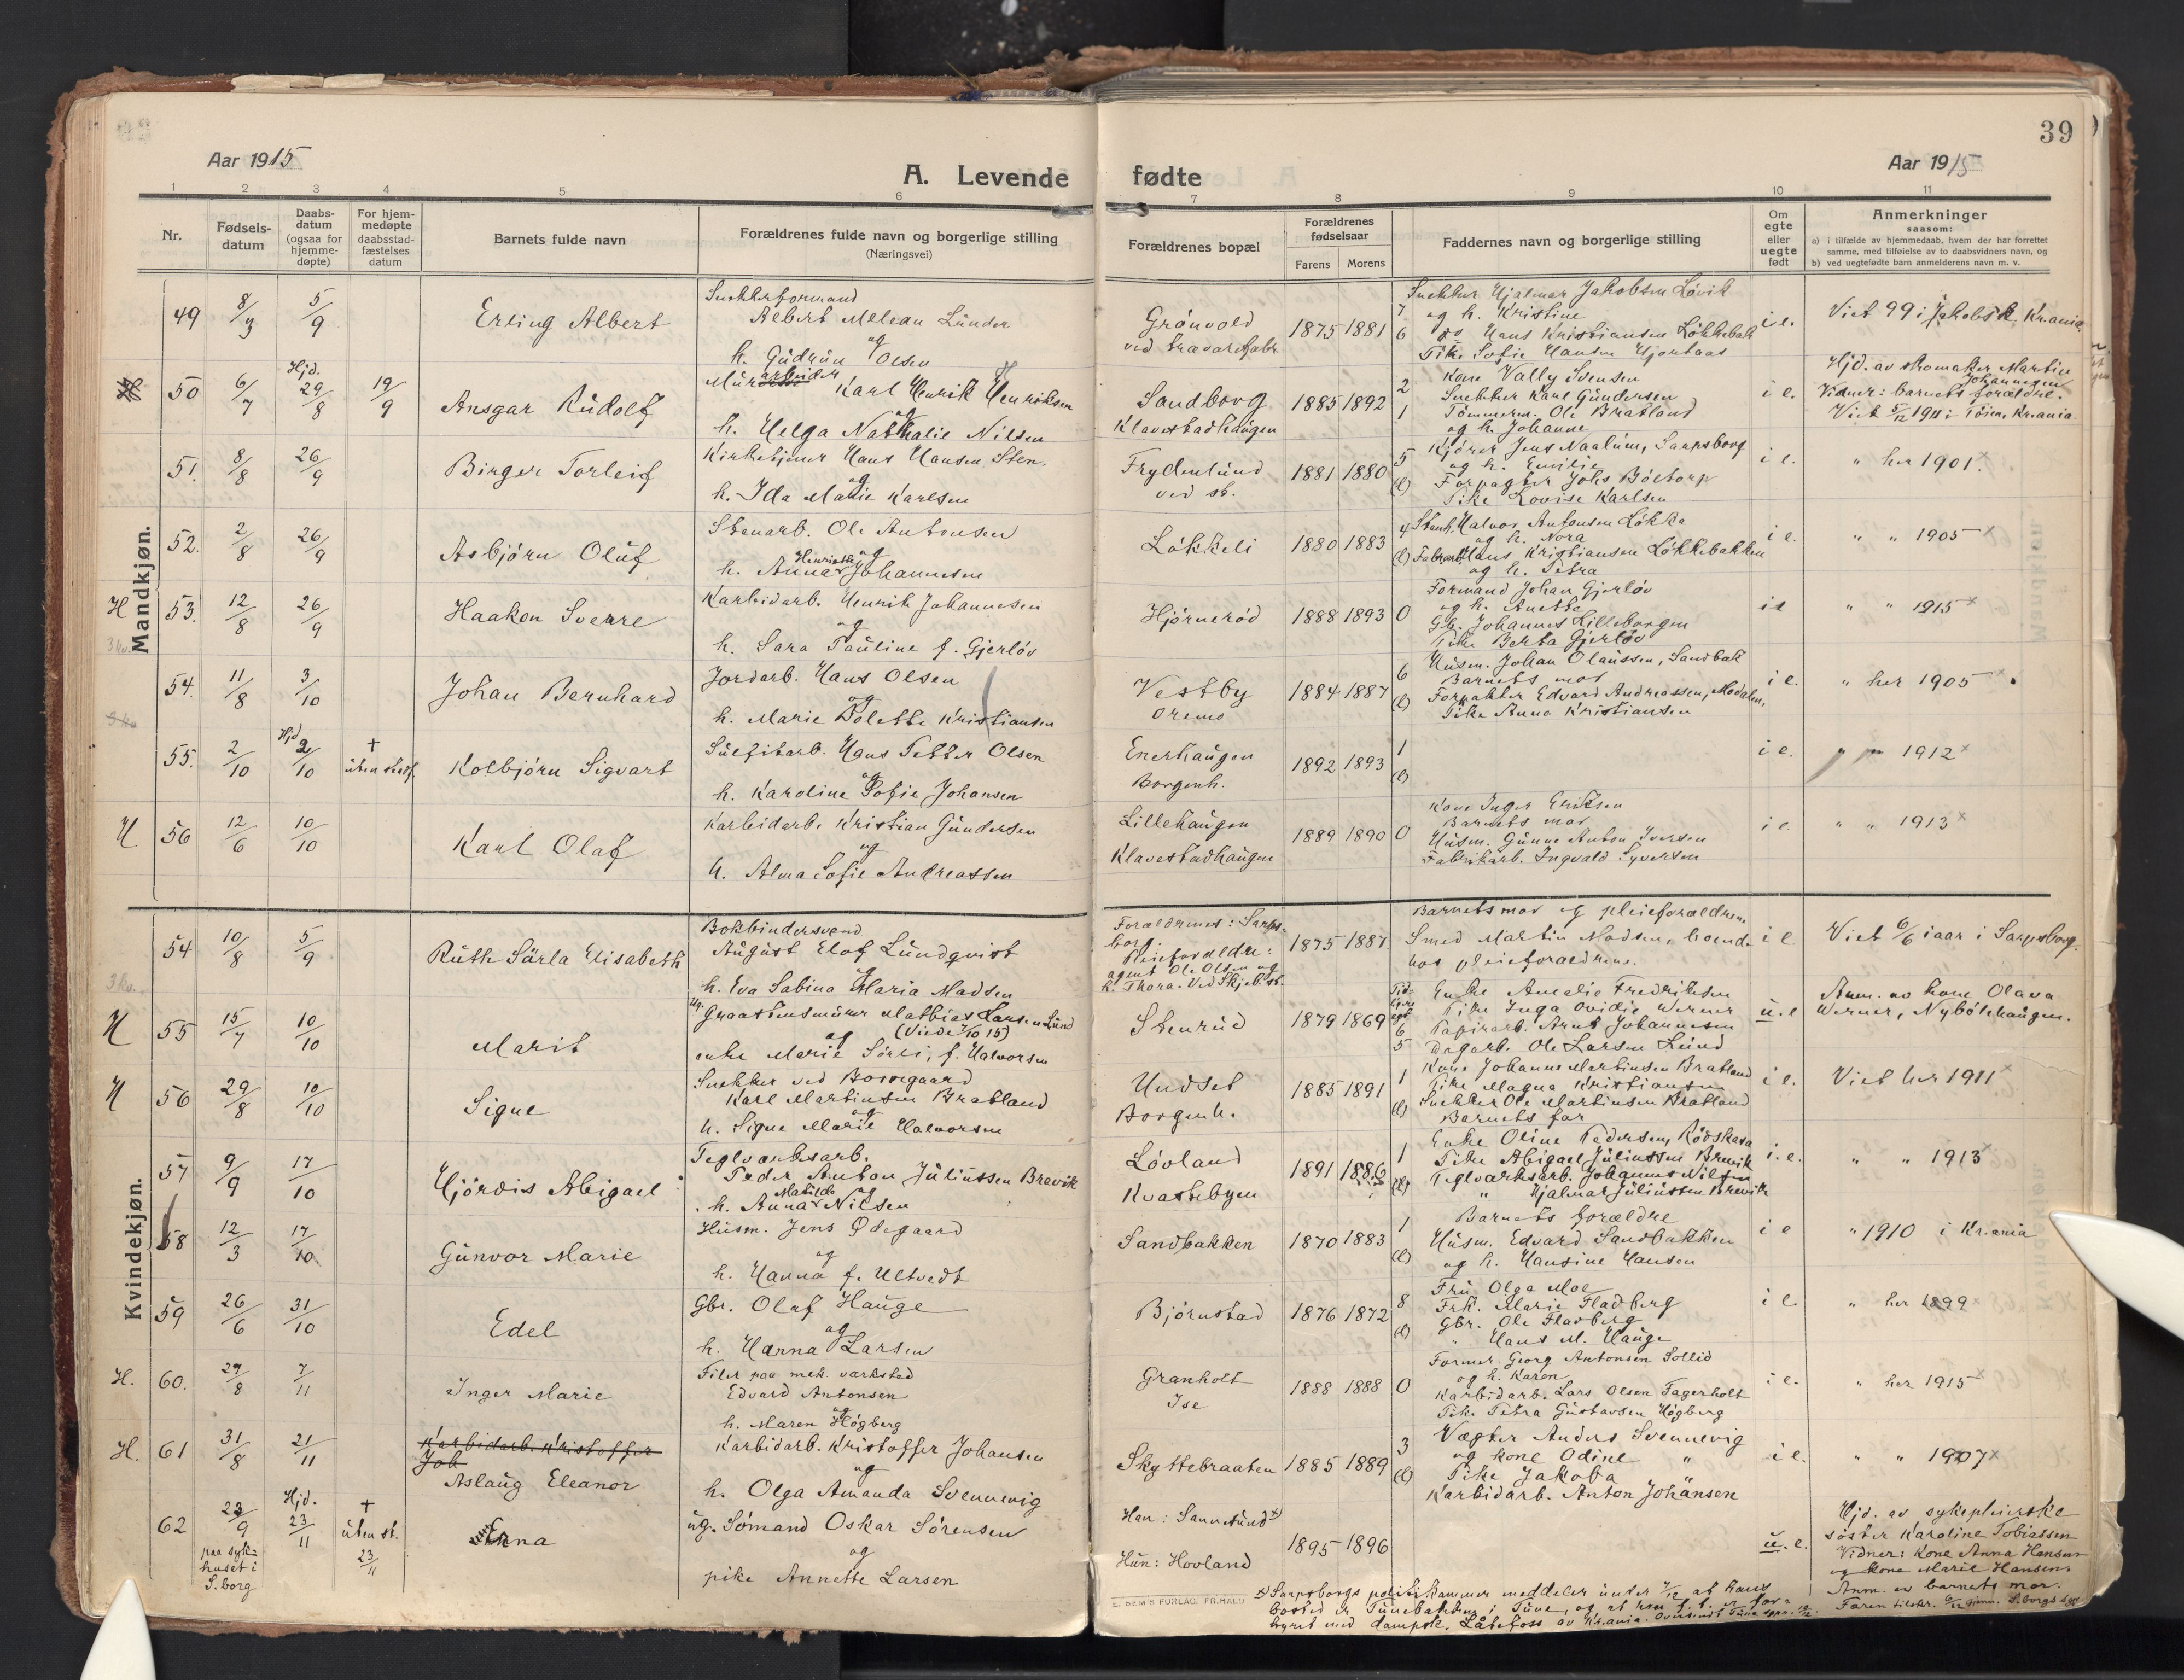 39
Aar 1915
A. Levende fødte
Aar 1915
1 2 3 4 5 6 7 8 9 10 11
Nr.
Fødsels-
datum
Daabs-
datum
(ogsaa for
hjemme-
døpte)
For hjem-
medøpte
daabsstad-
fæstelses
datum
Barnets fulde navn
Forældrenes fulde navn og borgerlige stilling
(Næringsvei)
Forældrenes bopæl
Forældrenes
fødselsaar
Farens Morens
Faddernes navn og borgerlige stilling
Om
egte
eller
uegte
født
Anmerkninger
saasom:
a) i tilfælde av hjemmedaab, hvem der har forrettet
samme, med tilføielse av to daabsvidners navn, og
b) ved uegtefødte barn anmelderens navn m. v.
Mandkjøn.
49 8/3 5/9 Erling Albert
Snekkerformand
Albert Melean Lunder
og
h. Gudrun Olsen
Grönvold
1875 1881
7
6
Snekker Hjalmar Jakobsen Lövik
og h. Kristine
Hans Kristiansen Lökkebak
Pike Sofie Hansen Hjortaas
i e.
Viet 99 i Jakobsk. Kr.ania
50 6/7 Hjd. 29/8 19/9 Ansgar Rudolf
Murarbeider
Karl Henrik Henriksen
og
h. Helga Nathalie Nilsen
Sandborg
Klavestadhaugen
1885 1892
2
1
Kone Vally Svensen
Snekker Karl Gundersen
Tömmerm. Ole Bratland
og h. Johanne
i e.
Hjd. av skomaker Martin
Johannesen
Vidner: barnets forældre.
Viet 5/12 1911 i Töien, Kr.ania
51. 8/8 26/9 Birger Torleif
Kirketjener Hans Hansen Sten.
og
h. Ida Marie Karlsen
Frydenlund
ved st.
1881 1880
5
(l)
Kjörer Jens Naalum, Sarpsborg
og h. Emilie
Forpagter Johs Böetorp
Pike Lovise Karlsen
i e.
" her 1901 x
52. 2/8 26/9 Asbjörn Oluf
Stenarb. Ole Antonsen
og
h. Anna Henriette Johannesen
Lökkeli
1880 1883
4
(l)
Stenh. Halvor Antonsen Lökka
og h. Nora
Fabrarb. Hans Kristiansen Lökkebakken
og h. Petra
i e.
" " 1905 x
H 53. 12/8 26/9 Haakon Sverre
Karbidarb. Henrik Johannesen
og
h. Sara Pauline f. Gjerlöv
Hjörneröd
1888 1893
0
Formand Johan Gjerlöv
og h. Anette
Gb. Johannes Lilleborgen
Pike Berta Gjerlöv
i e
" " 1915 x
54. 11/8 3/10 Johan Bernhard
Jordarb. Hans Olsen
og
h. Marie Bolette Kristiansen
Vestby
Oremo
1884 1887
6
(l)
Husm. Johan Olaussen, Sandbak
Barnets mor
Forpakter Edvard Andreassen, Modalen,
Pike Anna Kristiansen
i e.
" her 1905 x
55. 2/10 Hjd. 2/10 † uten stadf. Kolbjörn Sigvart
Sulfitarb. Hans Petter Olsen
og
h. Karoline Sofie Johansen
Enerhaugen
Borgenh.
1892 1893
1
(l)
i e.
" " 1912 x
H 56 12/6 10/10 Karl Olaf
Karbidarb. Kristian Gundersen
og
h. Alma Sofie Andreassen
Lillehaugen
Klavestadhaugen
1889 1890
0
Kone Inger Eriksen
Barnets mor
Husm. Gunne Anton Iversen
Fabrikarb. Ingvald Syversen
i e.
" " 1913 x
Kvindekjøn.
54 10/8 5/9 Ruth Särla Elisabeth
Bokbindersvend
August Elof Lundqvist
og
h. Eva Sabina Maria Madsen
Forældrenes: Sarps-
borg.
Pleieforældre:
agent Ole Olsen og
h. Thora. Ved Skjeb. st.
1875 1887
Barnets mor og pleieforældrene.
Smed Martin Madsen, boende
hos pleieforældrene.
i e
Viet 6/6 iaar i Sarpsborg.
H 55 15/7 10/10 Marit
Ug.
Graastensmurer Mathias Larsen Lund
(Viede 7/10 15)
og
enke Marie Sörli, f. Halvorsen
Stenrud
1879 1869
6
5
Enke Amalie Fredriksen
Pike Inga Ovidie Werner
Papirarb. Arnt Johannesen
Dagarb. Ole Larsen Lund
u. e
Anm. av kone Olava
Werner, Nybölehaugen.
H 56 29/8 10/10 Signe
Snekker ved Borregaard
Karl Martinsen Bratland
og
h. Signe Marie Halvorsen
Undset
Borgenh.
1885 1891
1
(l)
Kone Johanne Martinsen Bratland
Pike Magna Kristiansen
Snekker Ole Martinsen Bratland
Barnets far
i e.
Viet her 1911 x
57 9/9 17/10 Hjördis Abigael
Teglverksarb.
Peder Anton Juliussen Brevik
og
h. Anna Matilde Nilsen
Lövland
Kvastebyen
1891 1886
1
(l)
Enke Oline Pedersen, Rödskara
Pike Abigael Juliussen Brevik
Teglverksarb. Johannes Nilsen
" Hjalmar Juliussen Brevik
i. e.
" " 1913 x
58 12/3 17/10 Gunvor Marie
Husm. Jens Ødegaard
og
h. Hanna f. Ultvedt
Sandbakken
1870 1883
1
(l)
Barnets forældre
Husm. Edvard Sandbakken
og h. Hansine Hansen
i e
" 1910 i Kr.ania
59 26/6 31/10 Edel
Gbr. Olaf Hauge
og
h. Hanna Larsen
Björnstad
1876 1872
8
(l)
Fru Olga Moe
Frk. Marie Fladberg
Gbr. Ole Fladberg
" Hans M. Hauge
i e.
" her 1899 x
H. 60. 27/8 7/11 Inger Marie
Filer paa mek. verksted
Edvard Antonsen
og
h. Maren Högberg
Granholt
Ise
1888 1888
0
Former Georg Antonsen Sollid
og h. Karen
Karbidarb. Lars Olsen Fagerholt
Pike Petra Gustavsen Högberg
i e.
" her 1915 x
H. 61 31/8 21/11
Karbidarb. Kristoffer
Joh
Aslaug Eleanor
Karbidarb. Kristoffer Johansen
og
h. Olga Amanda Svennevig
Skyttebraaten
1885 1889
3
(l)
Vægter Anders Svennevig
og kone Odine "
Pike Jakoba
Karbidarb. Anton Johansen
i e.
" " 1907 x
62 23/9 Hjd. 23/11 † uten st. 23/11 Erna
paa syke-
huset i
S.borg
ug. Sömand Oskar Sörensen
og
pike Annette Larsen
Han: Sannesund x)
Hun: Hovland
1895 1896
u. e.
Hjd. av sykepleierske
söster Karoline Tobiassen
Vidner: Kone Anna Hansen
og kone Marie Hansen.
Anm. av barnets mor.
x) Sarpsborgs politikammer meddeler under 7/12 at hans
bosted er Tunebakken i Tune, og at han f. t. er for-
hyret med dampsk. Låtefoss av Kr.ania.
E. SEM'S FORLAG. FR.HALD